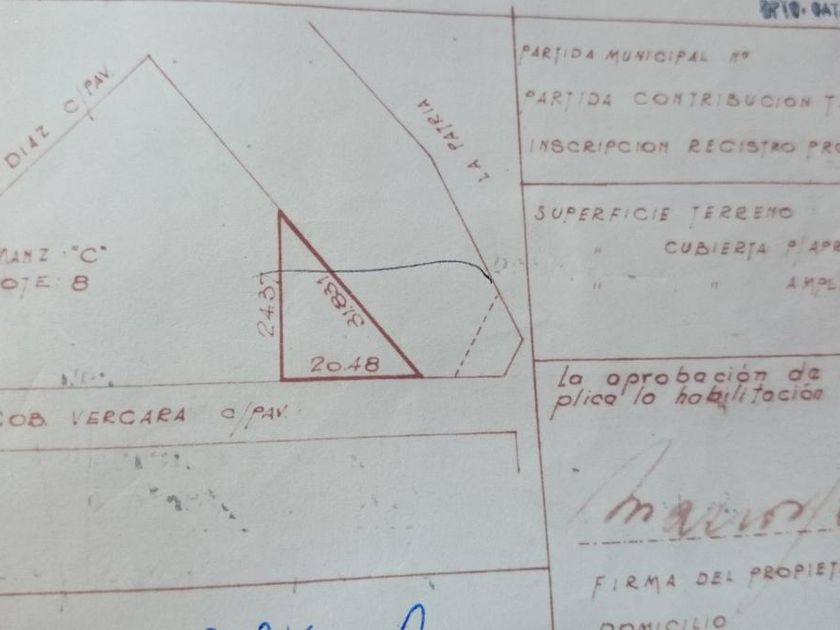 DIAZ C/PAV.
LA PATRIA
MANZ "C"
LOTE: 8
24.37
31.831
20.48
COB. VERGARA C/PAV.
PARTIDA MUNICIPAL Nº
PARTIDA CONTRIBUCION T
INSCRIPCION REGISTRO PRO
SUPERFICIE TERRENO
" CUBIERTA P/APR
" " AMPL
la aprobación de
plica lo habilitación
FIRMA DEL PROPIET
DOMICILIO